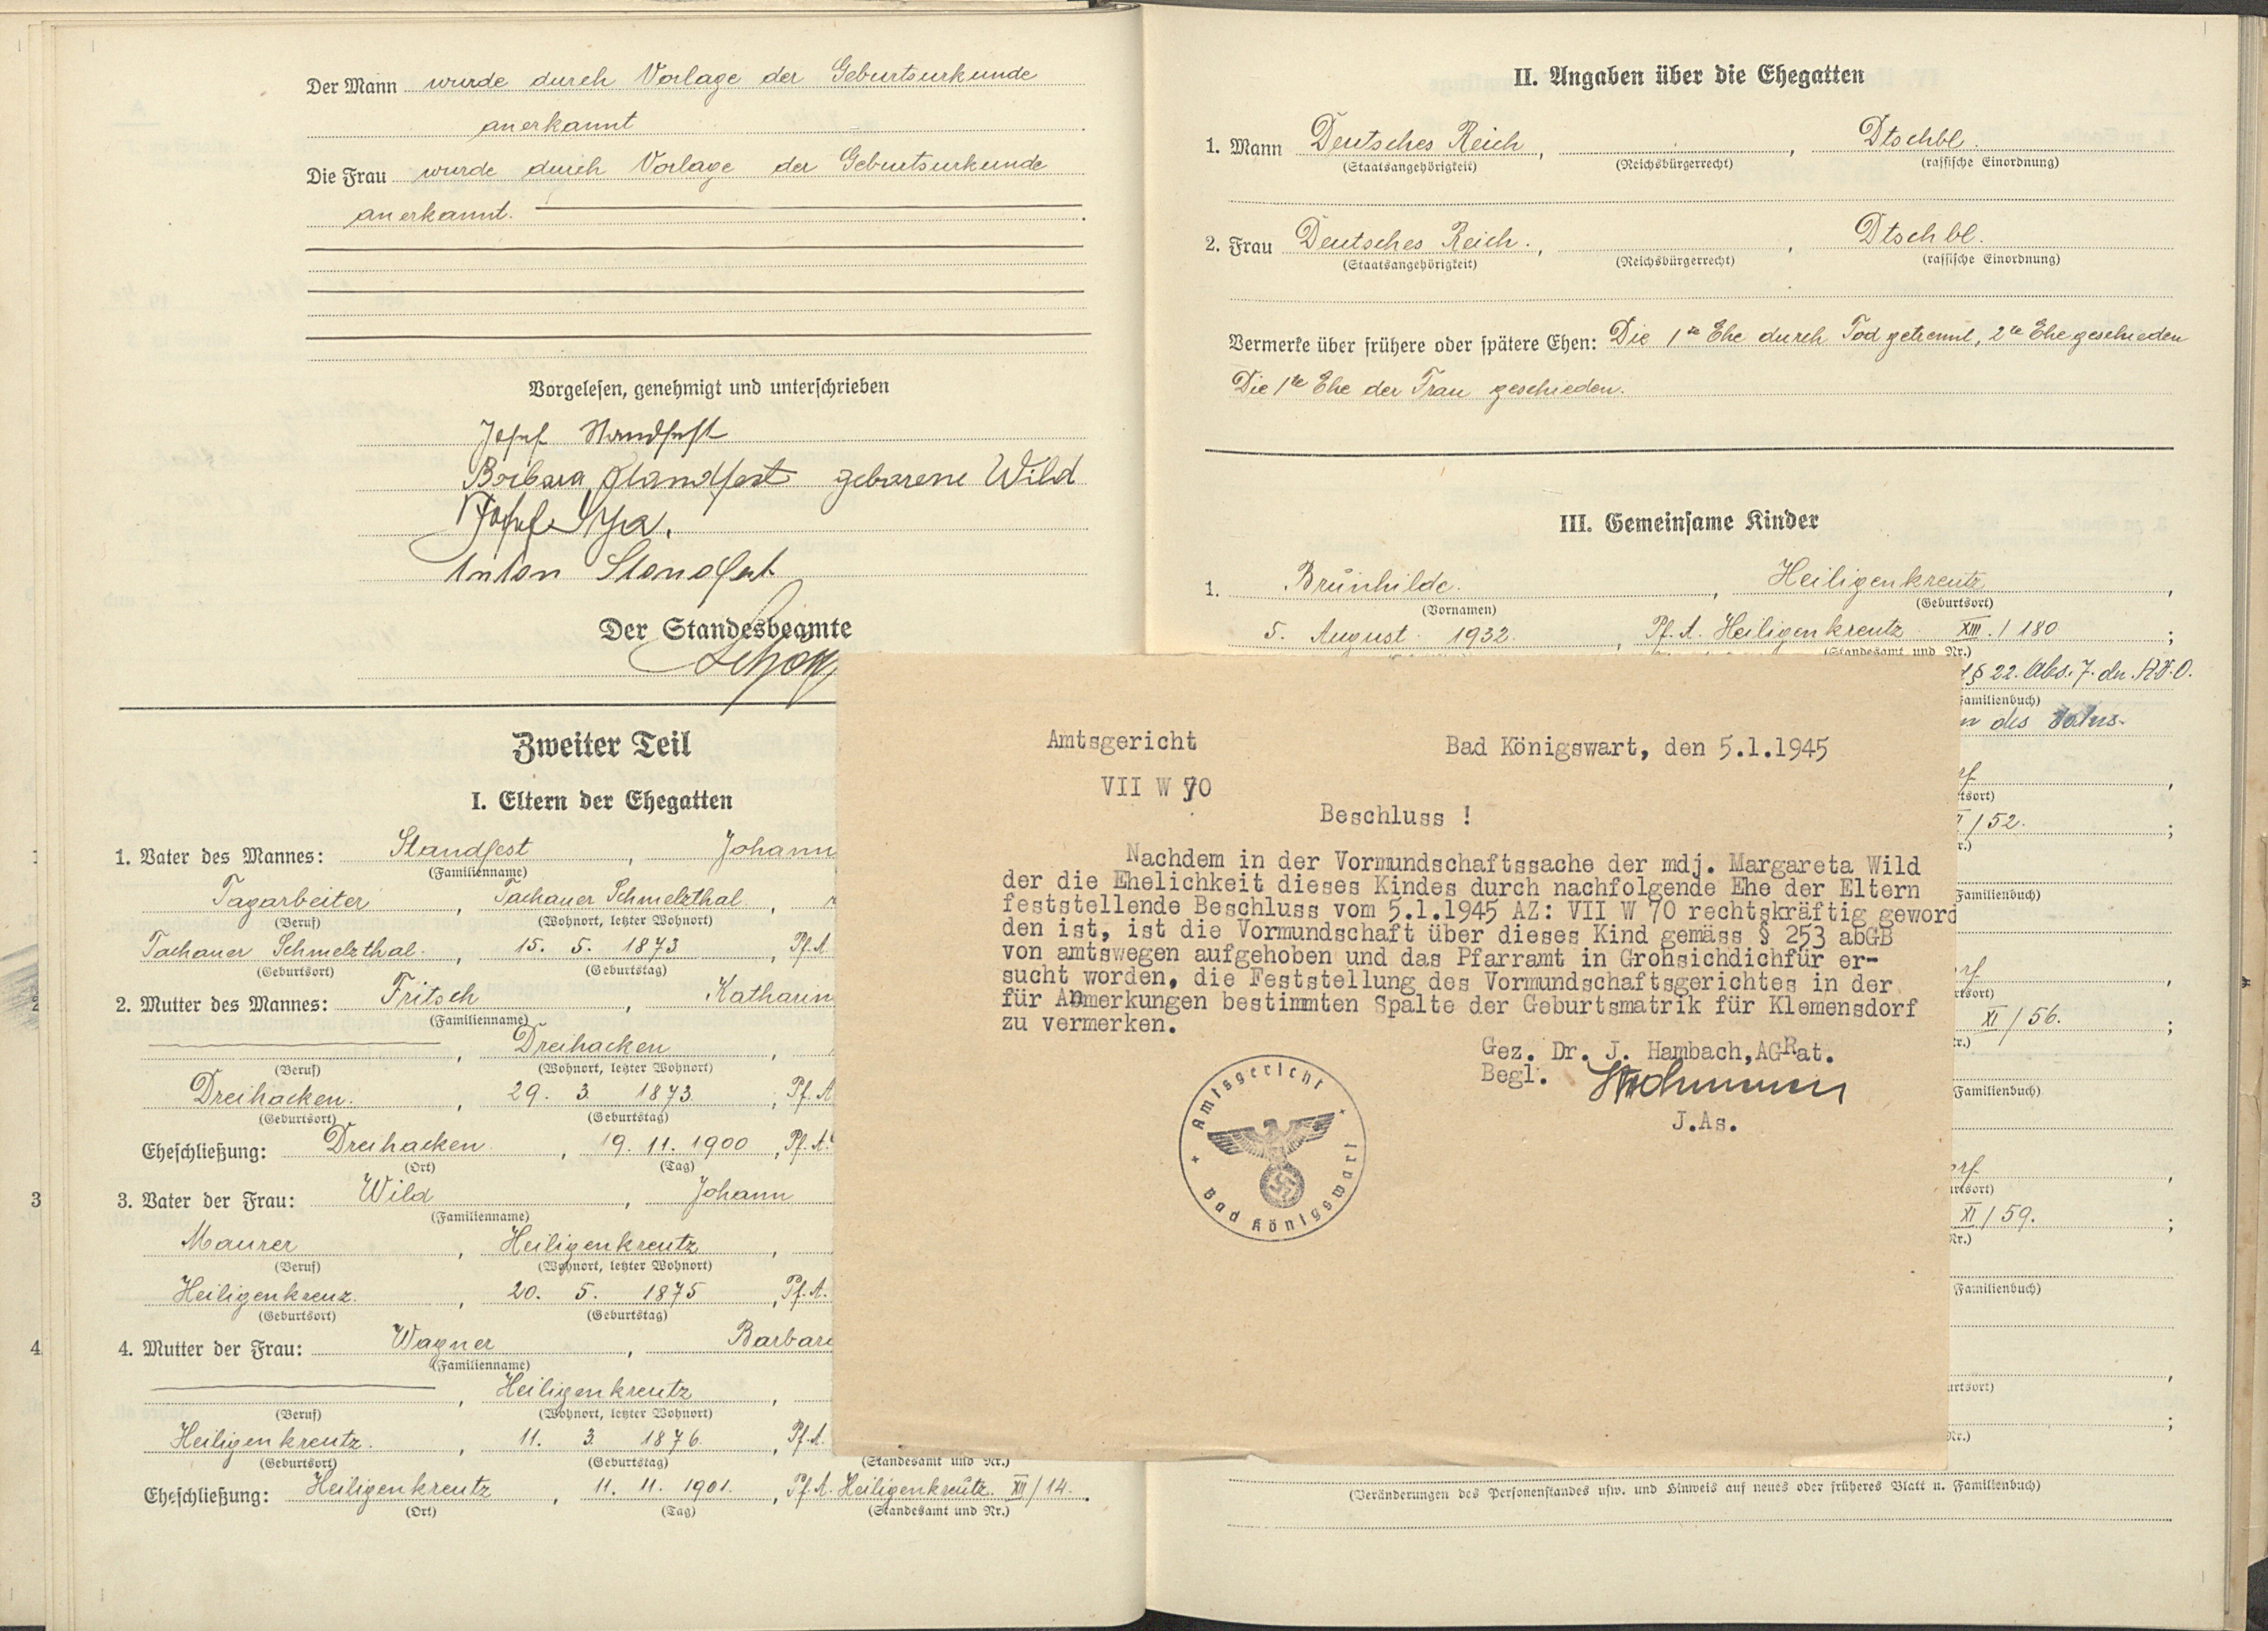 Der Mann wurde durch Vorlage der Geburtsurkunde
anerkannt
Die Frau wurde durch Vorlage der Geburtsurkunde
anerkannt.
Vorgelesen, genehmigt und unterschrieben
Josef Standfest
Barbara Standfest geborene Wild
Josef
Anton Standfest
Der Standesbeamte
Zweiter Teil
I. Eltern der Ehegatten
1. Vater des Mannes: Standfest, Johann
(Familienname)
Tagarbeiter, Tachauer Schmelzthal,
(Beruf) (Wohnort, letzter Wohnort)
Tachauer Schmelzthal, 15. 5. 1873, Pf.A
(Geburtsort) (Geburtstag)
2. Mutter des Mannes: Fritsch, Katharin
(Familienname)
, Dreihacken,
(Beruf) (Wohnort, letzter Wohnort)
Dreihacken, 29. 3. 1873, Pf.A
(Geburtsort) (Geburtstag)
Eheschließung: Dreihacken, 19. 11. 1900, Pf.A.
(Ort) (Tag)
3 3. Vater der Frau: Wild, Johann
(Familienname)
Maurer, Heiligenkreutz,
(Beruf) (Wohnort, letzter Wohnort)
Heiligenkreuz, 20. 5. 1875, Pf.A.
(Geburtsort) (Geburtstag)
4 4. Mutter der Frau: Wagner, Barbar
(Familienname)
, Heiligenkreutz,
(Beruf) (Wohnort, letzter Wohnort)
Heiligenkreutz, 11. 3. 1876, Pf.A.
(Geburtsort) (Geburtstag) (Standesamt und Nr.)
Eheschließung: Heiligenkreutz, 11. 11. 1901., Pf.A. Heiligenkreutz. XII/14.
(Ort) (Tag) (Standesamt und Nr.)
II. Angaben über die Ehegatten
1. Mann Deutsches Reich, , Dtschbl.
(Staatsangehörigkeit) (Reichsbürgerrecht) (rassische Einordnung)
2. Frau Deutsches Reich., , Dtschbl.
(Staatsangehörigkeit) (Reichsbürgerrecht) (rassische Einordnung)
Vermerke über frühere oder spätere Ehen: Die 1te Ehe durch Tod getrennt, 2te Ehe geschieden
Die 1te Ehe der Frau geschieden.
III. Gemeinsame Kinder
1. Brünhilde., Heiligenkreutz,
(Vornamen) (Geburtsort)
5. August 1932., Pf.A. Heiligenkreutz XIII./180;
(Standesamt und Nr.)
§ 22. Abs. 7. der
Familienbuch)
des
rf,
tsort)
/52.;
r.)
Familienbuch)
rf,
rtsort)
XI/56.;
r.)
Familienbuch)
rf,
urtsort)
XI/59.;
Nr.)
Familienbuch)
urtsort),
;
Nr.)
(Veränderungen des Personenstandes usw. und Hinweis auf neues oder früheres Blatt u. Familienbuch)
Amtsgericht Bad Königswart, den 5.1.1945
VII W 70
Beschluss !
Nachdem in der Vormundschaftssache der mdj. Margareta Wild
der die Ehelichkeit dieses Kindes durch nachfolgende Ehe der Eltern
feststellende Beschluss vom 5.1.1945 AZ: VII W 70 rechtskräftig geword
den ist, ist die Vormundschaft über dieses Kind gemäss § 253 abGB
von amtswegen aufgehoben und das Pfarramt in Grohsichdichfür er-
sucht worden, die Feststellung des Vormundschaftsgerichtes in der
für Anmerkungen bestimmten Spalte der Geburtsmatrik für Klemensdorf
zu vermerken.
Gez. Dr. J. Hambach, AGRat.
Begl.
J.As.
Amtsgericht
Bad Königswart